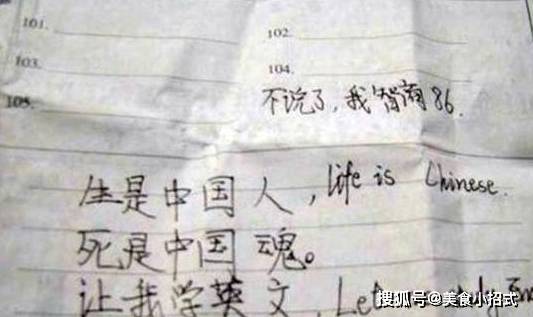 101. 102.
103. 104.
105. 不说了，我智商86.
生是中国人，life is Chinese.
死是中国魂。
让我学英文，Let
搜狐号@美食小招式